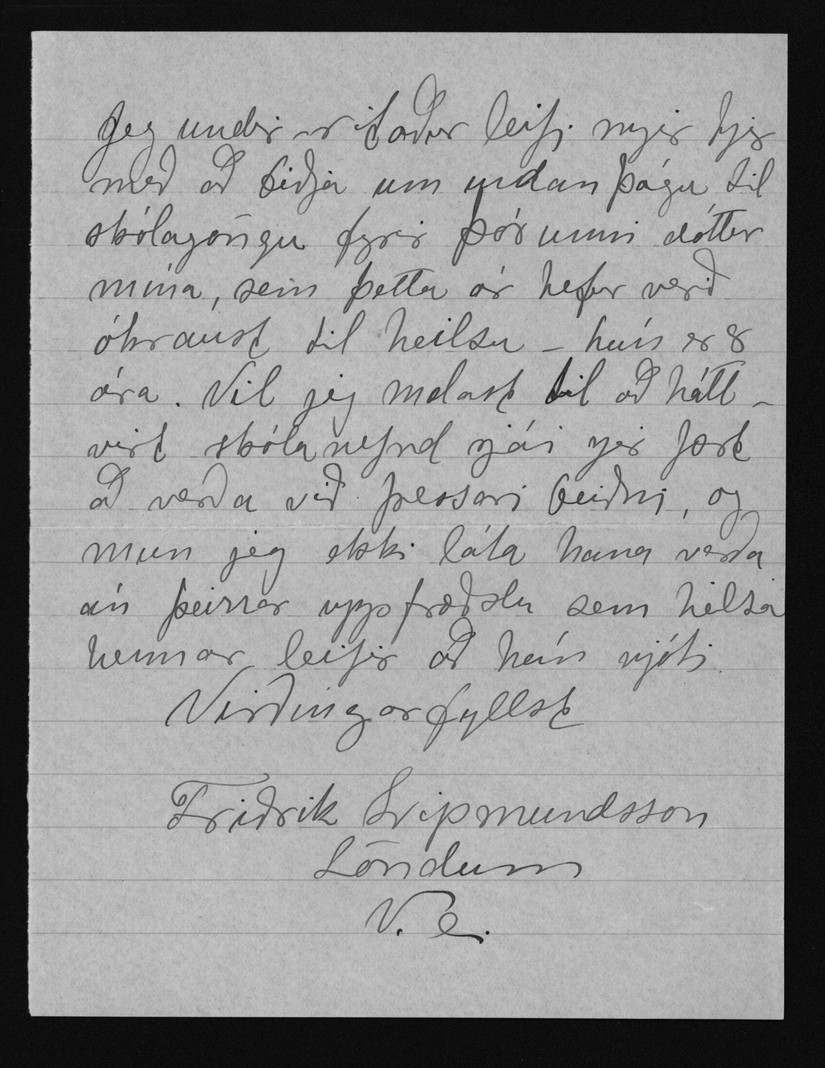 Jeg undirritaður leifi mjer hjer
með að biðja um undanþágu til
skólagöngu fyrir Þórunni dóttur
mína, sem þetta ár hefur verið
óhraust til heilsu – hún er 8
ára. Vil jeg mælast til að hátt-
virt skólanefnd sjái sjer fært
að verða við þessari beiðni, og
mun jeg ekki láta hana verða
án þeirrar uppfræðslu sem heilsa
hennar leifir að hún njóti
Virðingarfyllst
Friðrik Svipmundsson
Löndum
V. e.